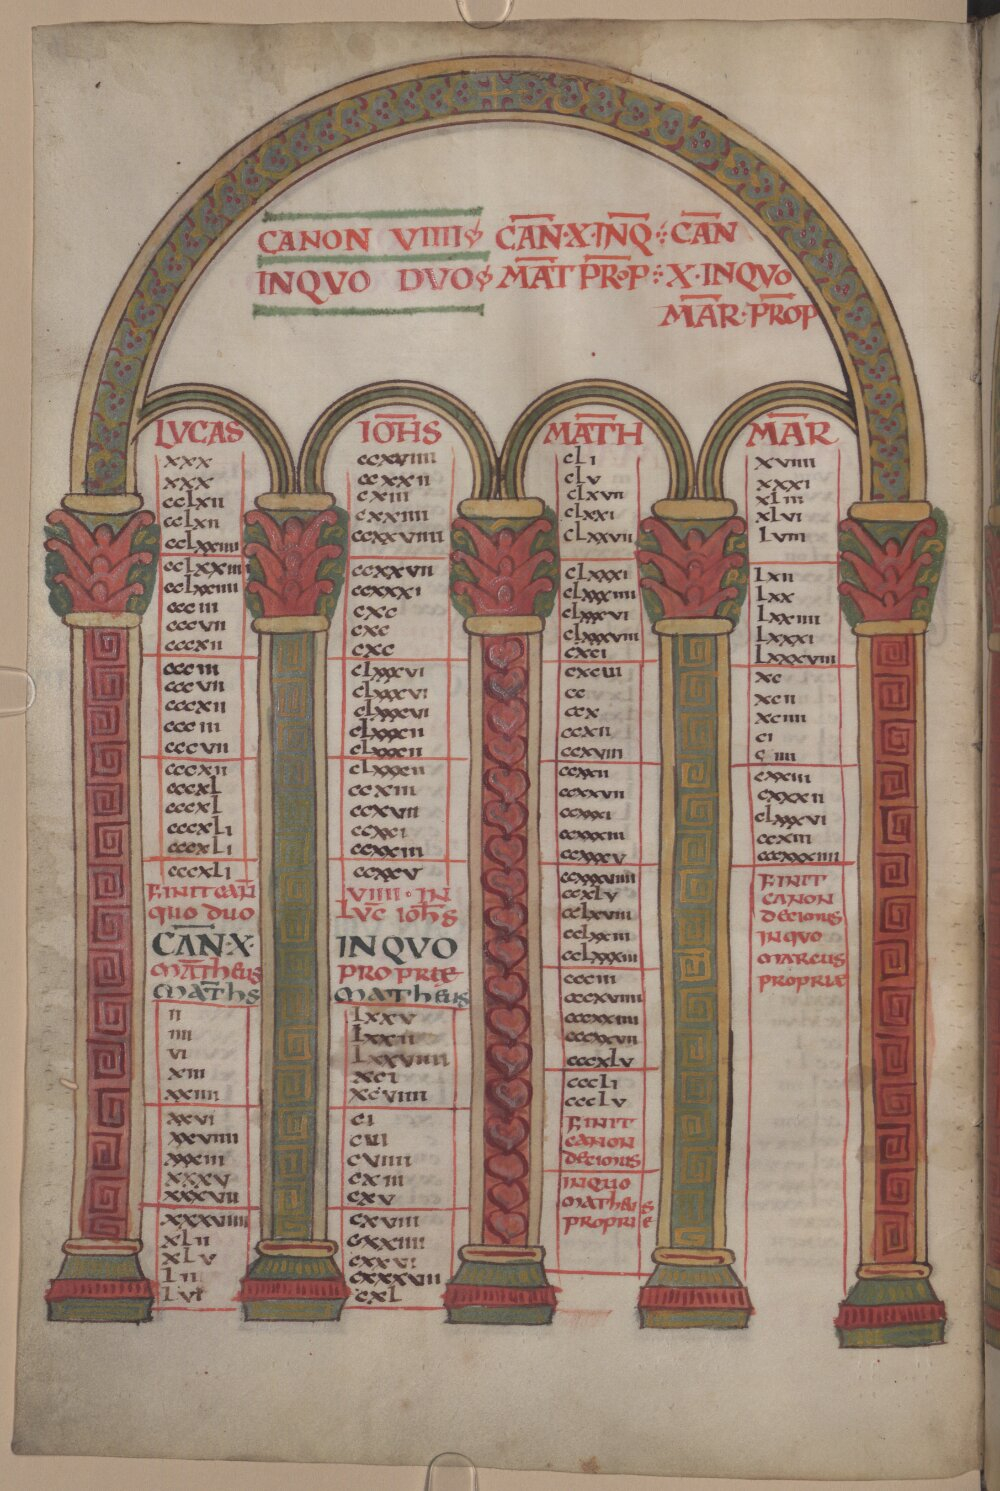 CANON VIIII CAN·X·INQ CAN
INQVO DVO MAT PROP X·INQVO
MAR·PROP
LVCAS
xxx
xxx
cclxii
cclxii
cclxxiiii
cclxxiiii
cclxxiiii
ccciii
cccvii
cccxii
ccciii
cccvii
cccxii
ccciii
cccvii
cccxii
cccxl
cccxl
cccxli
cccxli
cccxli
FINIT CAN
quo duo
CAN·X·
matheus
maths
ii
iiii
vi
xiii
xxiiii
xxvi
xxviiii
xxxiii
xxxv
xxxvii
xxxviiii
xlii
xlv
lii
lvi
IOHS
ccxviiii
ccxxii
cxiii
cxxiiii
ccxxviiii
ccxxvii
ccxxxi
cxc
cxc
cxc
clxxxvi
clxxxvi
clxxxvi
clxxxii
clxxxii
clxxxii
ccxiii
ccxvii
ccxxi
ccxxiii
ccxxv
VIIII·IN
LVC Iohs
INQVO
PROPRIE
matheus
lxxv
lxxxii
lxxxviiii
xci
xcviiii
ci
cvi
cviiii
cxiii
cxv
cxviii
cxxiiii
cxxvi
cxxxvii
cxl
MATH
cli
clv
clxvii
clxxi
clxxvii
clxxxi
clxxxiiii
clxxxvi
clxxxviii
cxci
cxciii
cc
ccx
ccxii
ccxviii
ccxxii
ccxxvii
ccxxxi
ccxxxiii
ccxxxv
ccxxxviiii
ccxlv
cclxviii
cclxxiii
cclxxxiii
ccciii
cccxviiii
cccxxiiii
cccxxvii
cccxlv
cccli
ccclv
FINIT
CANON
decimus
INQUO
matheus
PROPRIE
MAR
xviiii
xxxi
xliii
xlvi
lviii
lxii
lxx
lxxiiii
lxxxi
lxxxviii
xc
xcii
xciiii
ci
ciiii
cxxiii
cxxxii
clxxxvi
ccxiii
cccxxxiiii
FINIT
CANON
decimus
INQUO
marcus
PROPRIE